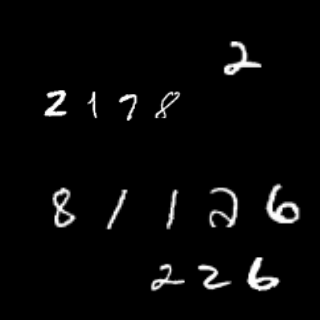 2
2178
81126
226